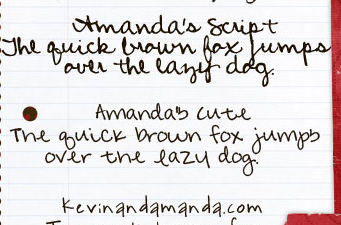 Amanda's Script
The quick brown fox jumps
over the lazy dog.
Amanda's cute
The quick brown fox jumps
over the lazy dog.
kevinandamanda.com